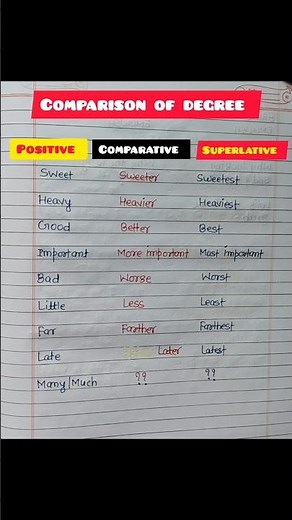 Comparison of degree
Positive Comparative Superlative
Sweet Sweeter Sweetest
Heavy Heavier Heaviest
Good Better Best
Important More important Most important
Bad Worse Worst
Little Less Least
Far Farther Farthest
Late Later Latest
Many/Much ?? ??